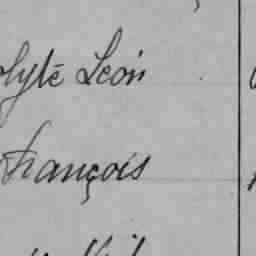 olyte Léon
François